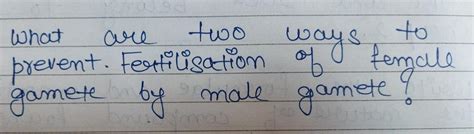 What are two ways to
prevent. Fertilisation of female
gamete by male gamete?